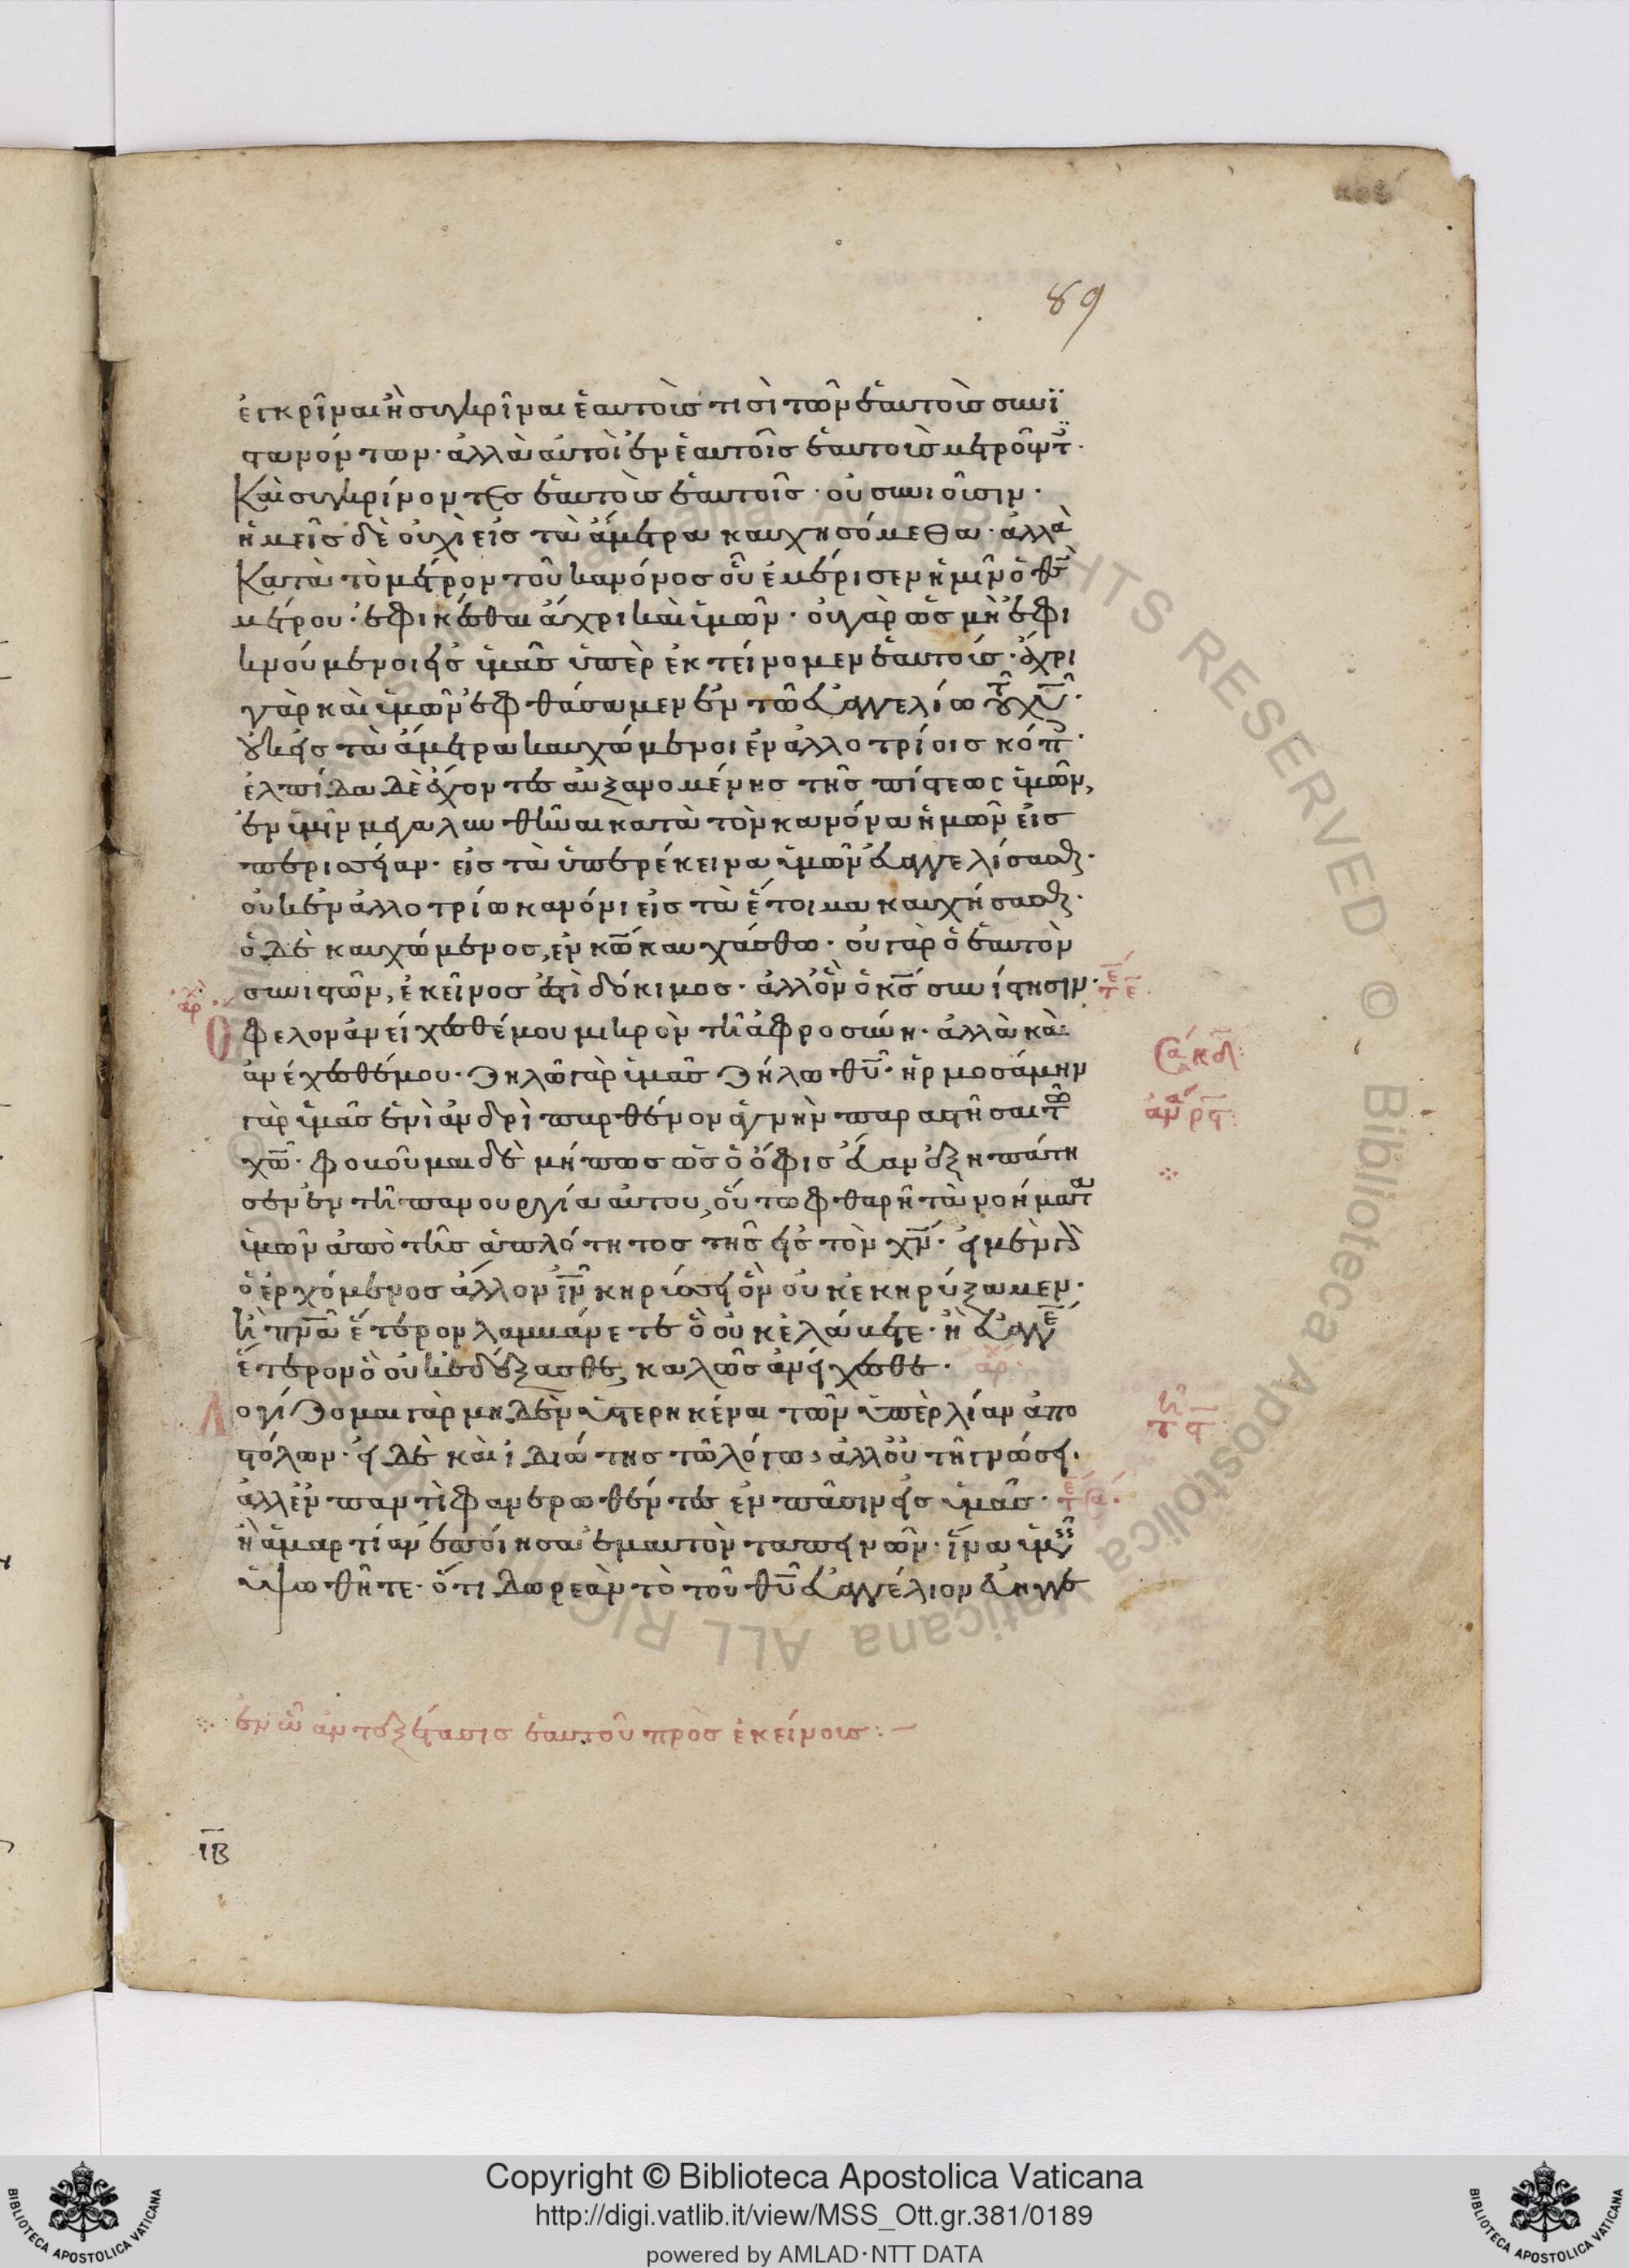 89
ἐγκρῖναι ἢ συγκρῖναι ἑαυτούς τισὶ τῶν ἑαυτοὺς συνϊ
στανόντων· ἀλλὰ αὐτοὶ ἐν ἑαυτοῖς ἑαυτοὺς μετροῦντ·
Καὶ συγκρίνοντες ἑαυτοὺς ἑαυτοῖς· οὐ συνιοῦσιν·
ἡμεῖς δὲ οὐχὶ εἰς τὰ ἄμετρα καυχησόμεθα· ἀλλὰ
Κατὰ τὸ μέτρον τοῦ κανόνος οὗ ἐμέρισεν ἡμῖν ὁ θς
μέτρου· ἐφικέσθαι ἄχρι καὶ ὑμῶν· οὐ γὰρ ὡς μὴ ἐφι
κνούμενοι εἰς ὑμᾶς ὑπὲρ ἐκτείνομεν ἑαυτούς· ἄχρι
γὰρ καὶ ὑμῶν ἐφθάσαμεν ἐν τῶ εὐαγγελίω τοῦ χυ·
οὐκ εἰς τὰ ἄμετρα καυχώμενοι ἐν ἀλλοτρίοις κόπ·
ἐλπίδα δὲ ἔχοντες αὐξανομένης τῆς πίστεως ὑμῶν,
ἐν ὑμῖν μεγαλυνθῆναι κατὰ τὸν κανόνα ἡμῶν εἰς
περισσείαν· εἰς τὰ ὑπερέκεινα ὑμῶν εὐαγγελίσασθ·
οὐκ ἐν ἀλλοτρίω κανόνι εἰς τὰ ἕτοιμα καυχήσασθ·
ὁ δὲ καυχώμενος, ἐν κω καυχάσθω· οὐ γὰρ ὁ ἑαυτὸν
συνιστῶν, ἐκεῖνος ἐστὶ δόκιμος· ἀλλ ὃν ὁ κς συνίστησιν·
Ὄφελον ἀνείχεσθέ μου μικρὸν τῆ ἀφροσύνη· ἀλλὰ καὶ
ἀνέχεσθέ μου· ζηλῶ γὰρ ὑμᾶς ζήλω θυ· ἡρμοσάμην
γὰρ ὑμᾶς ἑνὶ ἀνδρὶ παρθένον ἁγνὴν παραστῆσαι τῶ
χω· φοβοῦμαι δὲ μή πως ὡς ὁ ὄφις εὔαν ἐξηπάτη
σεν ἐν τῆ πανουργία αὐτου, οὕτω φθαρῆ τὰ νοήματα
ὑμῶν ἀπὸ τῆς ἁπλότητος τῆς εἰς τὸν χν· εἰ μὲν γὰρ
ὁ ἐρχόμενος ἄλλον ιν κηρύσσει ὃν οὐκ ἐκηρύξαμεν·
ἢ πνα ἕτερον λαμβάνετε ὃ οὐκ ἐλάβετε· ἢ εὐαγγε
ἕτερον ὃ οὐκ ἐδέξασθε, καλῶς ἀνείχεσθε·
Λογίζομαι γὰρ μηδὲν ὑστερηκέναι τῶν ὑπὲρ λίαν ἀπο
στόλων· εἰ δὲ καὶ ἰδιώτης τῶ λόγω, ἀλλ οὐ τῆ γνώσει·
ἀλλ ἐν παντὶ φανερωθέντες ἐν πᾶσιν εἰς ὑμᾶς·
ἢ ἁμαρτίαν ἐποίησα ἐμαυτὸν ταπεινῶν· ἵνα ὑμεῖς
ὑψωθῆτε· ὅτι δωρεὰν τὸ τοῦ θυ εὐαγγέλιον εὐηγγε
ἐν ὧ ἀντεξέτασις ἑαυτοῦ πρὸς ἐκείνους: –
ιβ
Copyright © Biblioteca Apostolica Vaticana
http://digi.vatlib.it/view/MSS_Ott.gr.381/0189
powered by AMLAD·NTT DATA